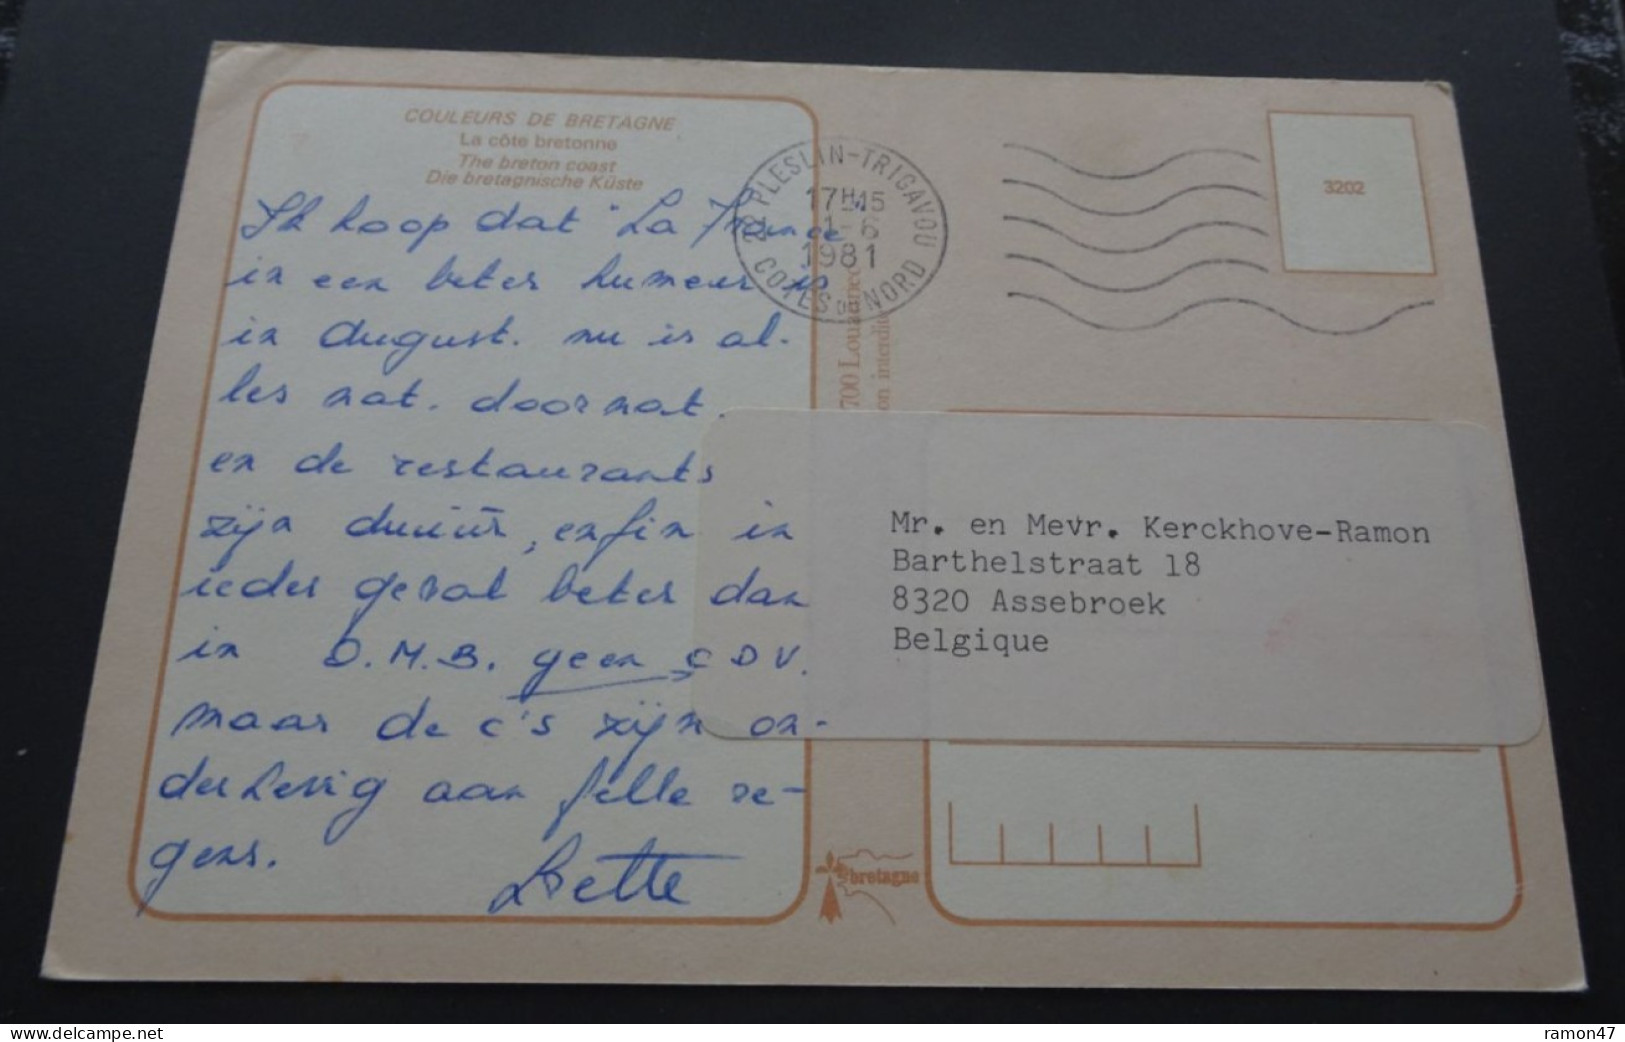 COULEURS DE BRETAGNE
La côte bretonne
The breton coast
Die bretagnische Küste
Ik hoop dat "La France"
in een beter humeur is
in August. nu is al-
les nat. doornat.
en de restaurants
zijn duuúr, enfin in
ieder geval beter dan
in D.M.B. geen CDV.
maar de c's zijn on-
derhevig aan felle re-
gens.
Lette
22 PLESLIN-TRIGAVOU
17H15
1-6
1981
COTES DU NORD
3202
700 Louannec
on interdite
Mr. en Mevr. Kerckhove-Ramon
Barthelstraat 18
8320 Assebroek
Belgique
bretagne
delcampe.net
ramon47